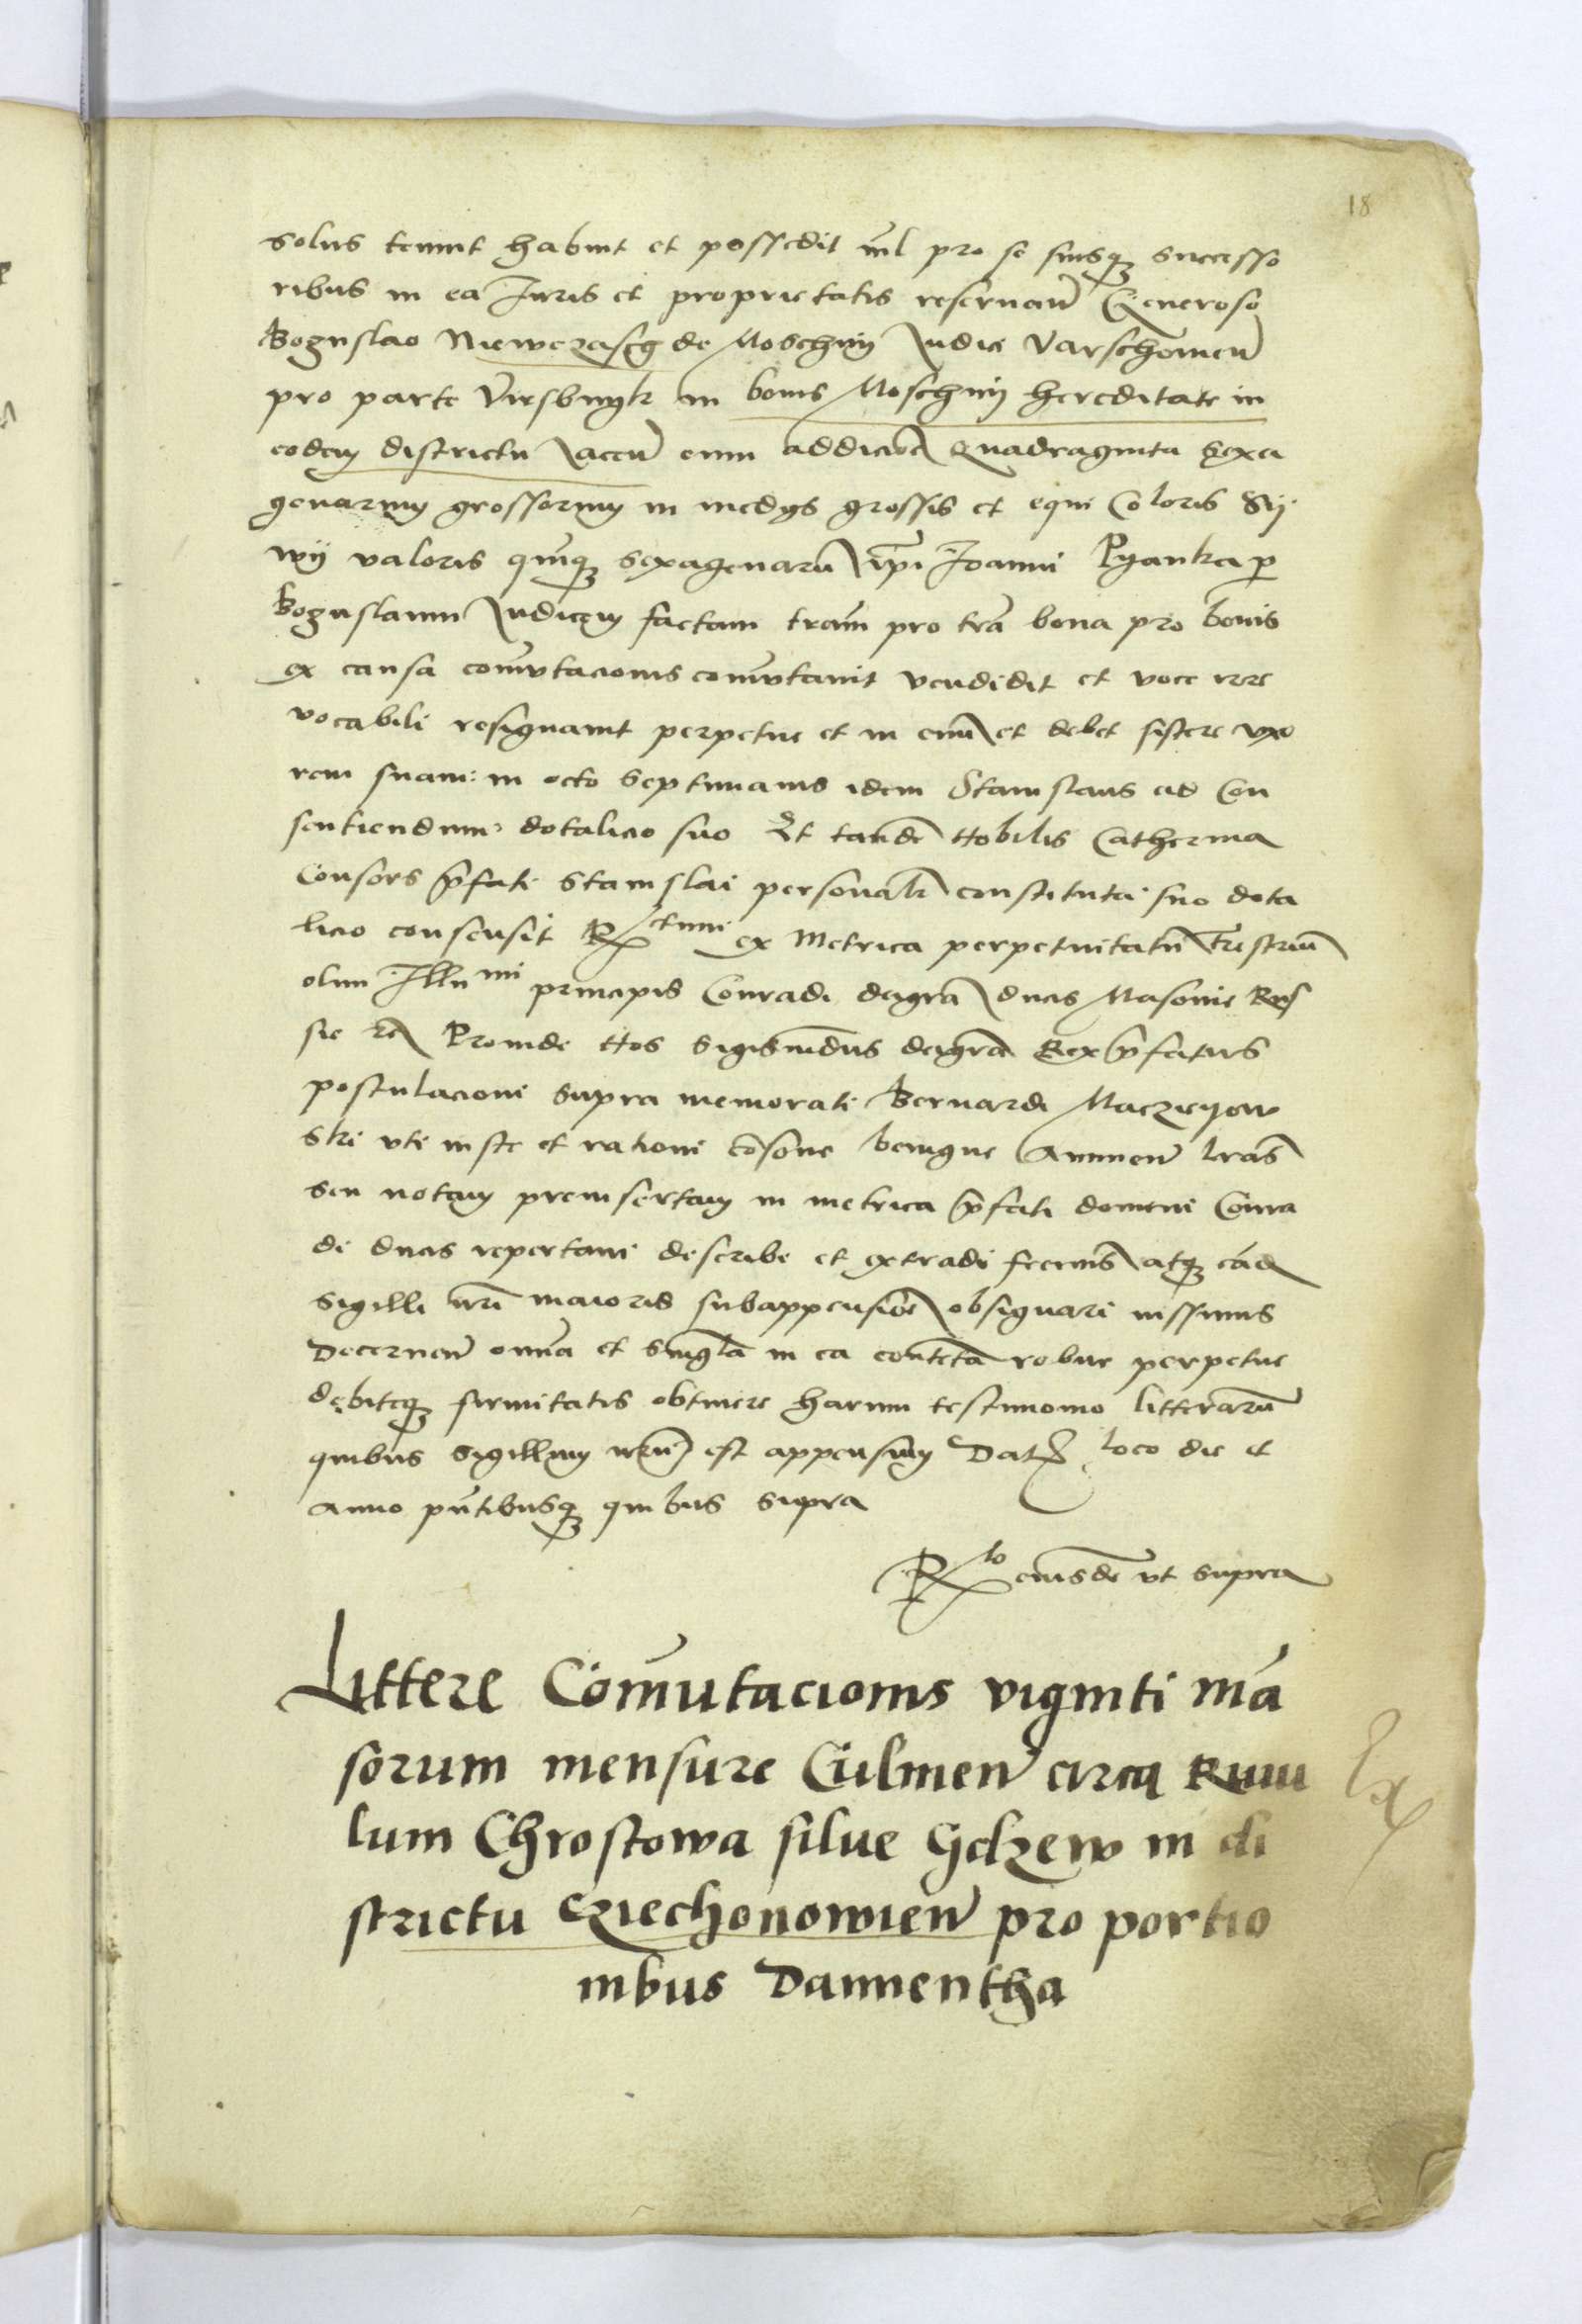 18
solus tenuit habuit et possedit nil pro se suisq successo
ribus in ea Iuris et proprietatis reseruan Generoso
Boguslao de Moschnij Iudici Varschouien
pro parte Virsbnyk in bonis Moschnij hereditate in
eodem districtu iacen cum addicione Quadraginta Sexa
genarum grossorum in medys grossis et equi Coloris Sij
wij valoris quinq sexagenaru ipi Ioanni Pyanka p
Boguslaum Iudicem factam tram pro tra bona pro bonis
ex causa comutacionis comutauit vendidit et voce irre
vocabili resignauit perpetue et in euu et debet sistere vxo
rem suam in octo septimanis idem Stanislaus ad Con
sentiendum dotalicio suo Et tande Nobilis Catherina
Consors pfati Stanislai personalr constituta suo dota
licio consensit Rctum ex Metrica perpetuitatu Trestriu
olim Illumi principis Conradi deigra ducis Masouie Rus
sie zc Proinde Nos Sigismudus deigra Rex pfatus
postulacioni supra memorati Bernardi Maczieyow
ski vti iuste et rationi cosone benigne Annuen lras
seu notam preinsertam in metrica pfati domini Conra
di ducis repertam describi et extradi fecimus atq eade
Sigilli nri maioris subappensione obsignari iussimus
Decernen omia et singla in ea conteta robur perpetue
debiteq firmitatis obtinere harum testimonio litteraru
quibus Sigillum nrum est appensum Dat loco die et
anno pntibusq quibus supra
Rlo eiusde vt supra
Littere Comutacionis viginti ma
sorum mensure Culmen circa Riuu
lum Chrostowa silue Gdzew in di
strictu Cziechonowien pro portio
nibus Dannentha
Ex